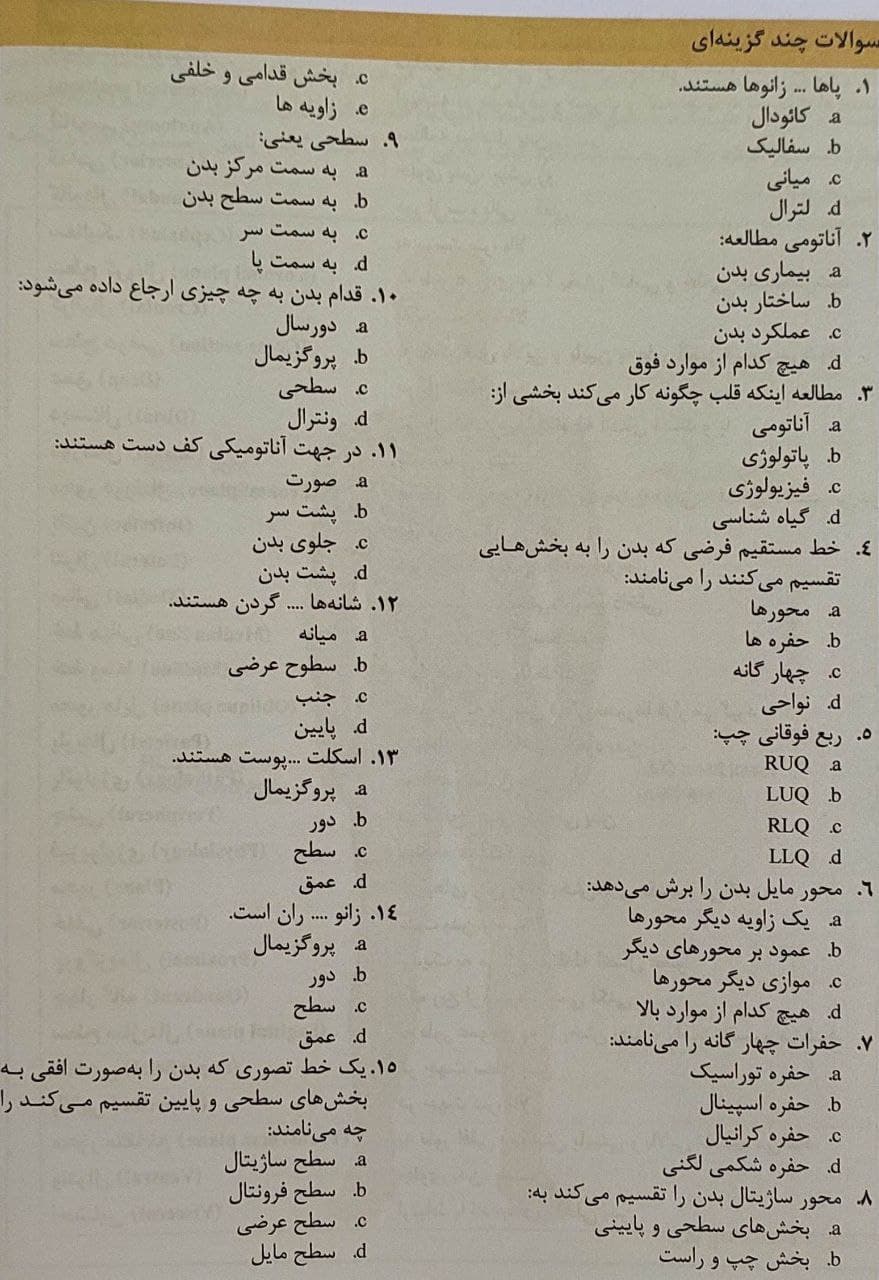 سوالات چند گزینه‌ای
۱. پاها ... زانوها هستند.
a. کائودال
b. سفالیک
c. میانی
d. لترال
۲. آناتومی مطالعه:
a. بیماری بدن
b. ساختار بدن
c. عملکرد بدن
d. هیچ کدام از موارد فوق
۳. مطالعه اینکه قلب چگونه کار می‌کند بخشی از:
a. آناتومی
b. پاتولوژی
c. فیزیولوژی
d. گیاه شناسی
٤. خط مستقیم فرضی که بدن را به بخش‌هـایی
تقسیم می‌کنند را می‌نامند:
a. محورها
b. حفره ها
c. چهار گانه
d. نواحی
٥. ربع فوقانی چپ:
a. RUQ
b. LUQ
c. RLQ
d. LLQ
٦. محور مایل بدن را برش می‌دهد:
a. یک زاویه دیگر محورها
b. عمود بر محورهای دیگر
c. موازی دیگر محورها
d. هیچ کدام از موارد بالا
۷. حفرات چهار گانه را می‌نامند:
a. حفره توراسیک
b. حفره اسپینال
c. حفره کرانیال
d. حفره شکمی لگنی
۸. محور ساژیتال بدن را تقسیم می‌کند به:
a. بخش‌های سطحی و پایینی
b. بخش چپ و راست
c. بخش قدامی و خلفی
e. زاویه ها
۹. سطحی یعنی:
a. به سمت مرکز بدن
b. به سمت سطح بدن
c. به سمت سر
d. به سمت پا
۱۰. قدام بدن به چه چیزی ارجاع داده می‌شود:
a. دورسال
b. پروگزیمال
c. سطحی
d. ونترال
۱۱. در جهت آناتومیکی کف دست هستند:
a. صورت
b. پشت سر
c. جلوی بدن
d. پشت بدن
۱۲. شانه‌ها .... گردن هستند.
a. میانه
b. سطوح عرضی
c. جنب
d. پایین
۱۳. اسکلت ...پوست هستند.
a. پروگزیمال
b. دور
c. سطح
d. عمق
۱٤. زانو .... ران است.
a. پروگزیمال
b. دور
c. سطح
d. عمق
۱٥. یک خط تصوری که بدن را به‌صورت افقی بـه
بخش‌های سطحی و پایین تقسیم می‌کنـد را
چه می‌نامند:
a. سطح ساژیتال
b. سطح فرونتال
c. سطح عرضی
d. سطح مایل